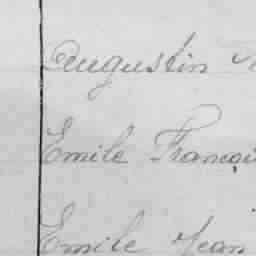 Augustin
Emile Françoi
Emile Jean